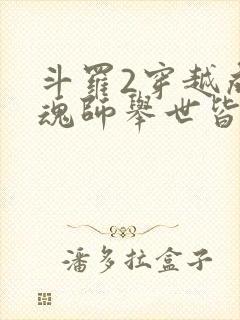 斗羅2穿越
魂師舉世皆
潘多拉盒子